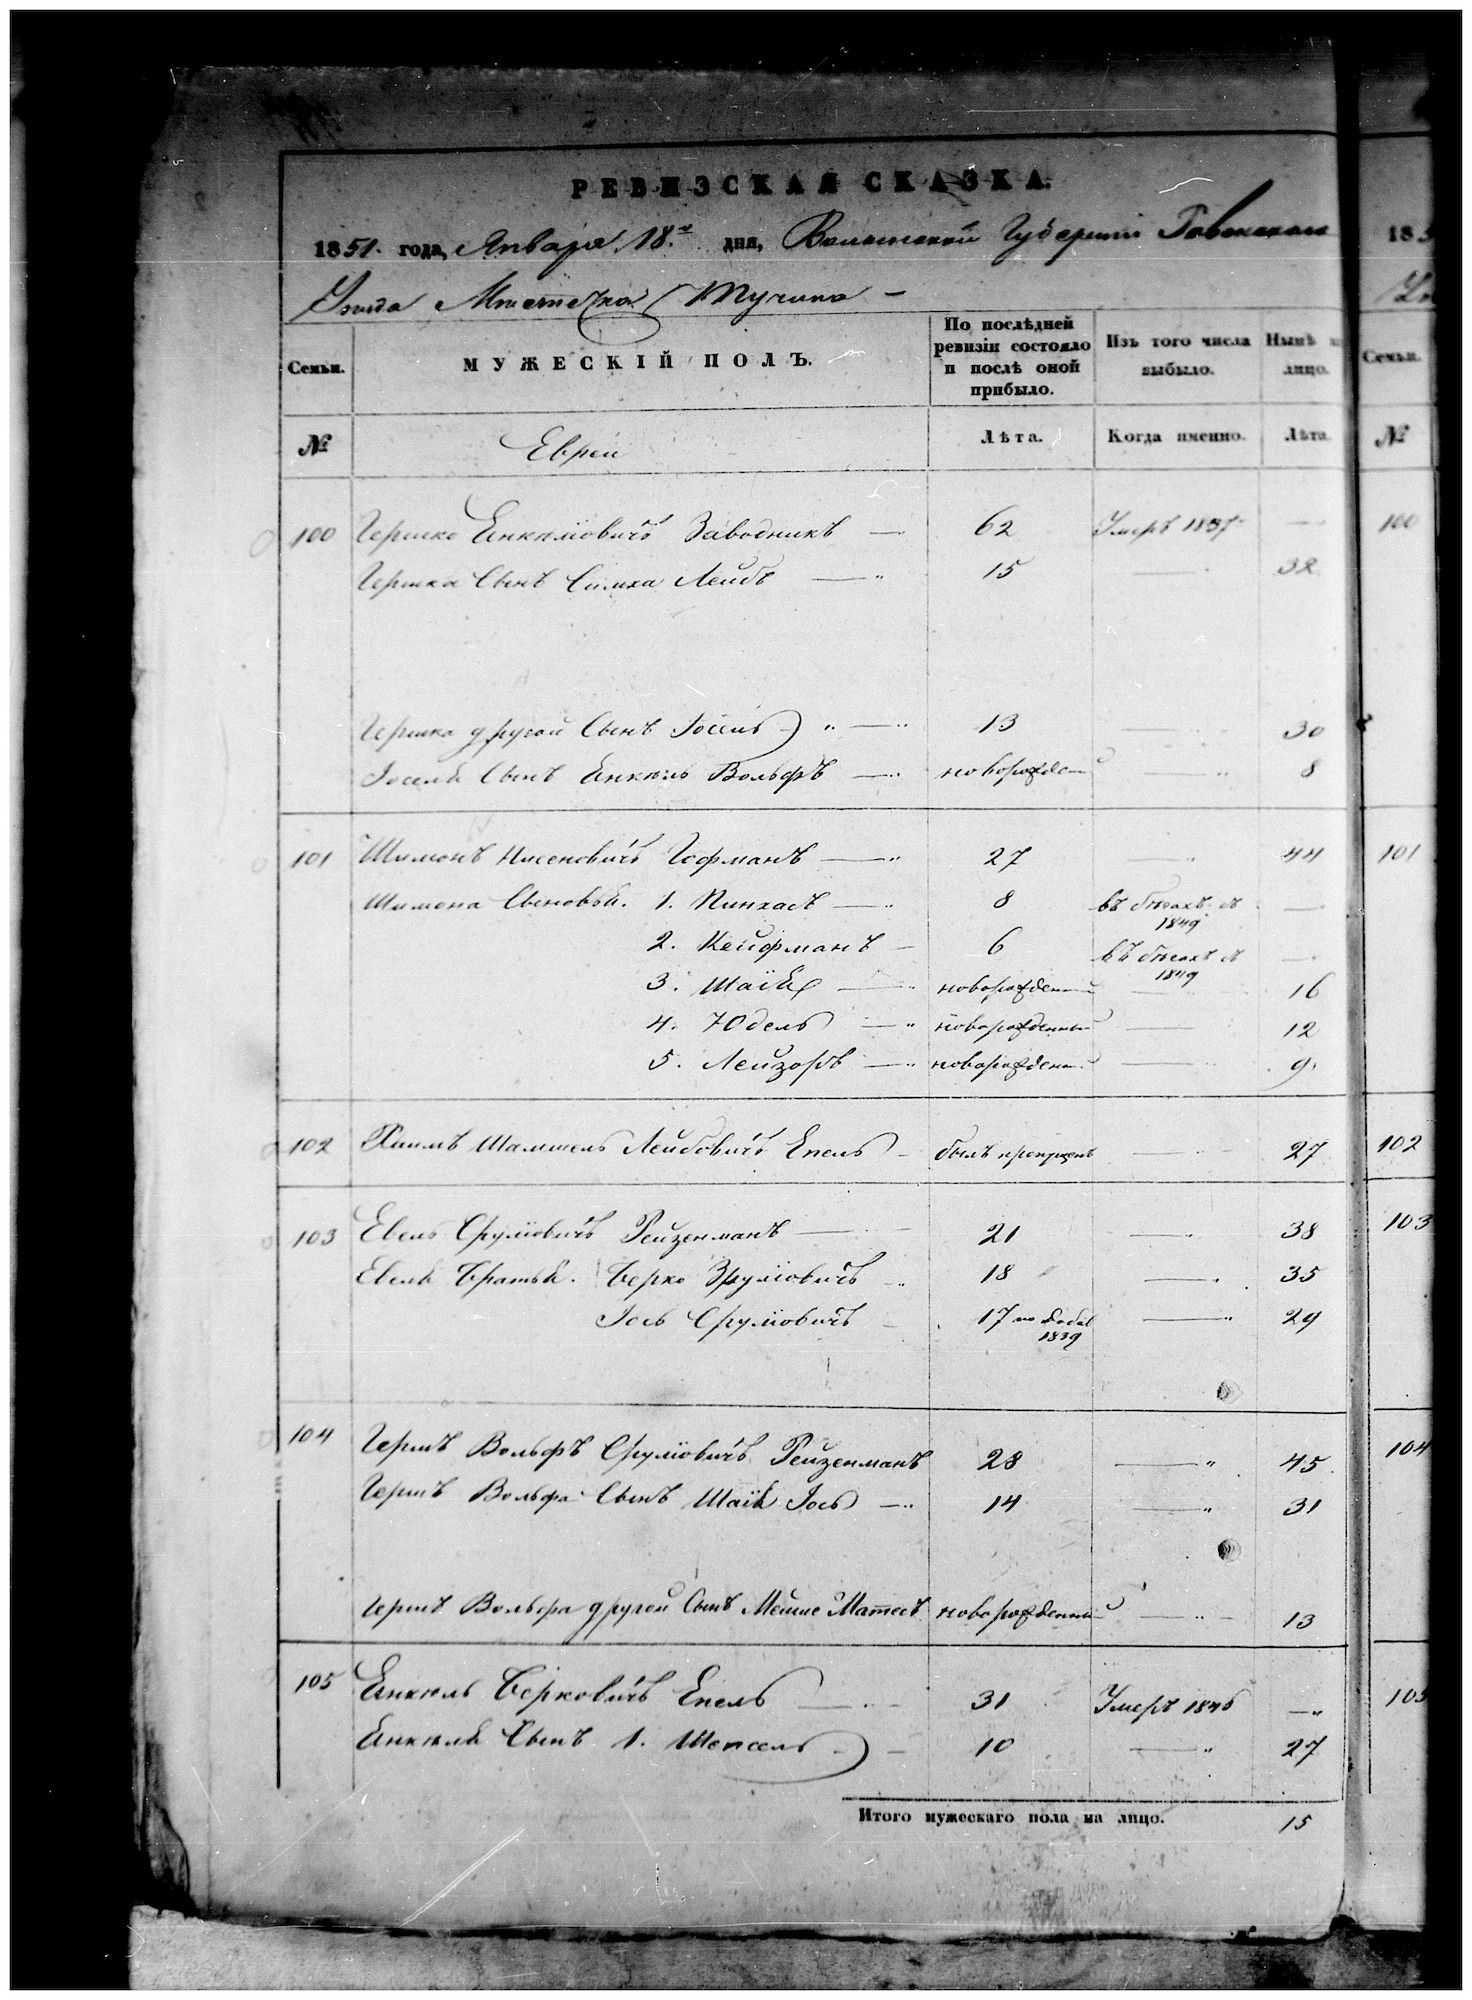 РЕВИЗСКАЯ СКАЗКА.
1851. года, Января 18.го дня, Волынской Губерніи Ровенскаго
Уѣзда Мѣстечка Тучина —
Семьи. МУЖЕСКІЙ ПОЛЪ. По послѣдней ревизіи состояло и послѣ оной прибыло. Изъ того числа выбыло. Нынѣ на лицо.
№ Евреи Лѣта. Когда именно. Лѣта.
100 Гершко Янкиліовичъ Заводникъ — 62 Умеръ 1837 —
Гершка Сынъ Симха Лейбъ — " 15 — 32
Гершка другой Сынъ Іосель " — " 13 — 30
Іоселя Сынъ Янкель Вольфъ — " новорожден — " 8
101 Шимонъ Нисеновичъ Гофманъ — " 27 " 44
Шимона Сыновья. 1. Пинхасъ — " 8 въ бѣгахъ съ 1849 —
2. Кейфманъ — 6 въ бѣгахъ съ 1849 —
3. Шаія — " новорожденный — 16
4. Юдель — " новорожденный — 12
5. Лейзоръ — " новорожден — 9
102 Хаимъ Шамшель Лейбовичъ Епель — былъ пропущенъ — " — 27
103 Евель Сруліовичъ Рейзенманъ — 21 — " 38
Евеля Братья. Берко Зруліовичъ " 18 — " 35
Іось Сруліовичъ — 17 по добав 1839 — " 29
104 Гершъ Вольфъ Сруліовичъ Рейзенманъ 28 — " 45
Гершъ Вольфа Сынъ Шаія Іось — " 14 — " 31
Гершъ Вольфа другой Сынъ Мейше Матесъ новорожденный — " — 13
105 Янкель Берковичъ Епель — " — 31 Умеръ 1846 — "
Янкеля Сынъ 1. Шепсель — 10 — " 27
Итого мужескаго пола на лицо. 15
185
Семьи.
№
100
101
102
103
104
105